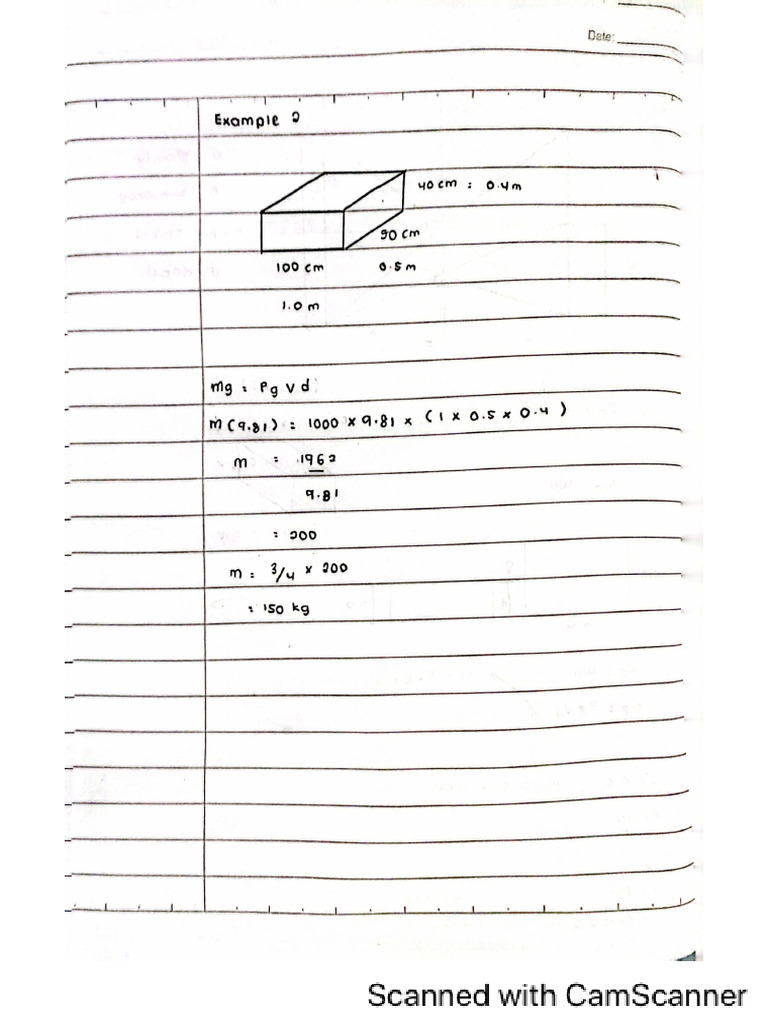 Date:
Example 2
40 cm = 0.4 m
50 cm
100 cm 0.5 m
1.0 m
mg = ρg v d
m (9.81) = 1000 × 9.81 × (1 × 0.5 × 0.4)
m = 1962
9.81
= 200
m = 3/4 × 200
= 150 kg
Scanned with CamScanner